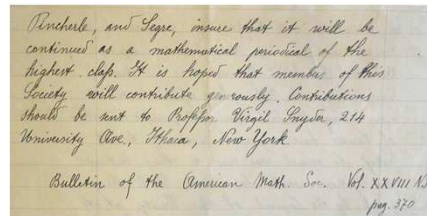 Pincherle, and Segre, insure that it will be
continued as a mathematical periodical of the
highest class. It is hoped that members of this
Society will contribute generously. Contributions
should be sent to Professor Virgil Snyder, 214
University Ave., Ithaca, New York
Bulletin of the American Math. Soc. Vol. XXVIII
pag. 370